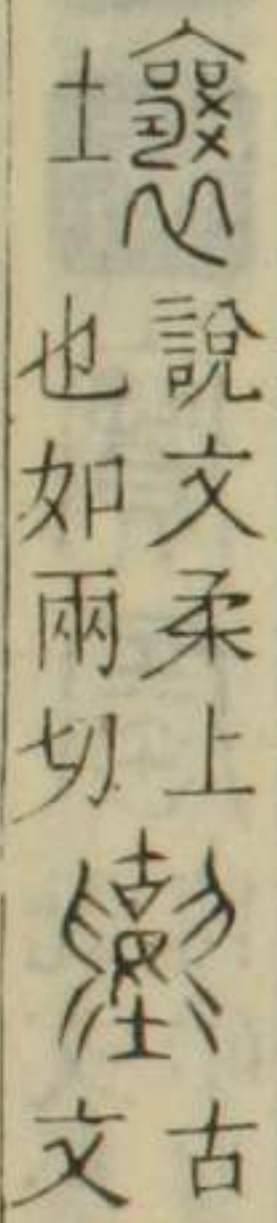 壤
說文柔上
也如兩切
古
文